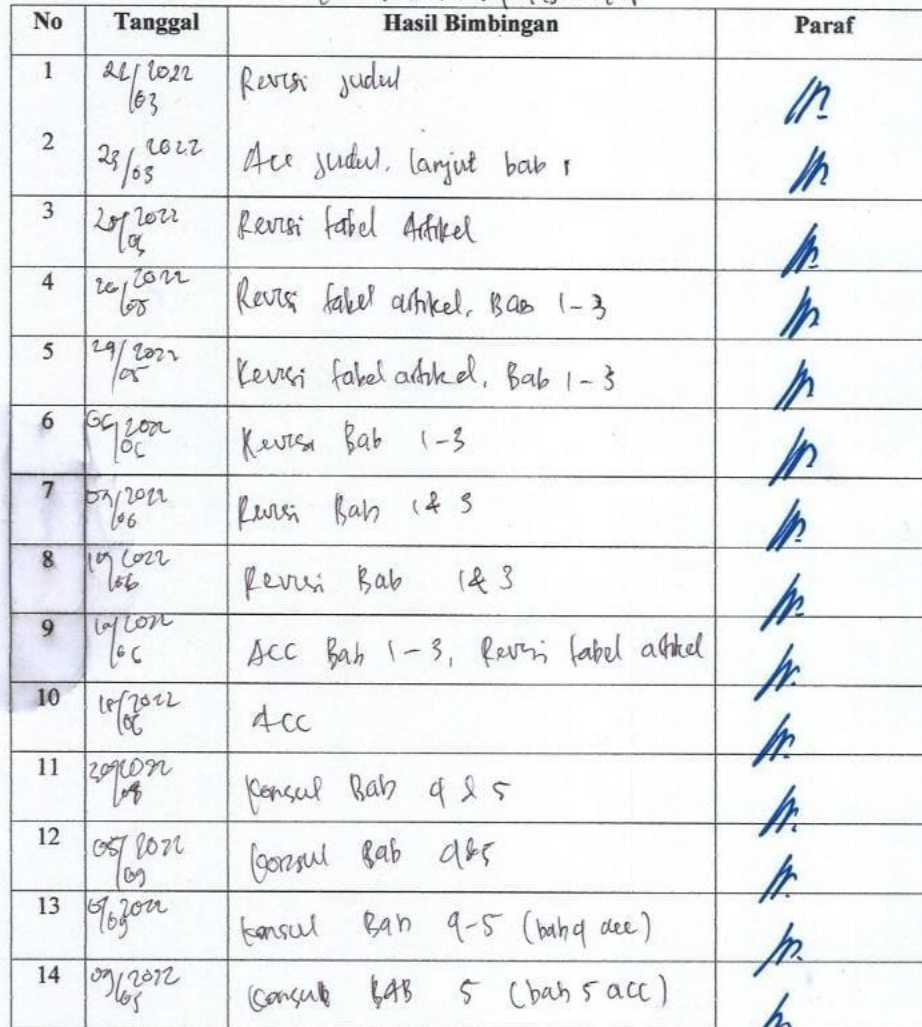 No Tanggal Hasil Bimbingan Paraf
1 22/2022 03 Revisi judul
2 23/2022 03 Acc judul, lanjut bab 1
3 2022 Revisi tabel Artikel
4 2022 05 Revisi tabel artikel, Bab 1-3
5 29/2022 05 Revisi tabel artikel, Bab 1-3
6 06/2022 06 Revisi Bab 1-3
7 2022 06 Revisi Bab 1 & 3
8 2022 06 Revisi Bab 1 & 3
9 2022 06 ACC Bab 1-3, Revisi tabel artikel
10 2022 06 ACC
11 2022 08 Konsul Bab 4 & 5
12 05/2022 09 Konsul Bab 4&5
13 2022 09 Konsul Bab 4-5 (bab 4 acc)
14 09/2022 Konsul BAB 5 (bab 5 acc)